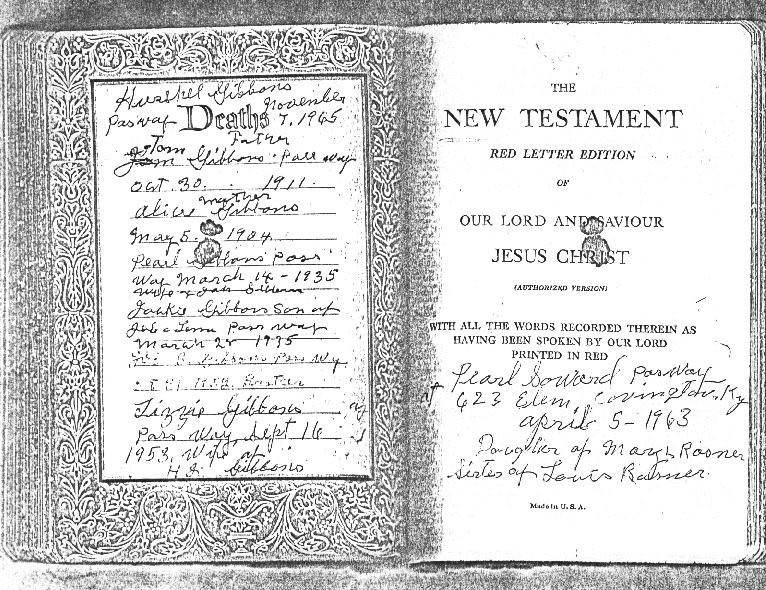 Hershel Gibbons
November
Pasway Deaths 7, 1965
Father
Tom Gibbons Pass Way
Oct. 30. 1911.
mother
Alice Gibbons
May 5. 1904
Pearl Gibbons Pass
Way March 14 - 1935
Wife of
Jackie Gibbons Son of
Pass way
March 25 1935
Gibbons Pass Wy
Lizzie Gibbons
Pass Way, Sept 16
1953, Wife of
H. Gibbons
THE
NEW TESTAMENT
RED LETTER EDITION
OF
OUR LORD AND SAVIOUR
JESUS CHRIST
(AUTHORIZED VERSION)
WITH ALL THE WORDS RECORDED THEREIN AS
HAVING BEEN SPOKEN BY OUR LORD
PRINTED IN RED
Pearl Soward PasWay
at 623 Elem, Covington, Ky
april 5-1963
Daughter of Mary Rosner
Sister of Louis Rosner
Made in U. S. A.